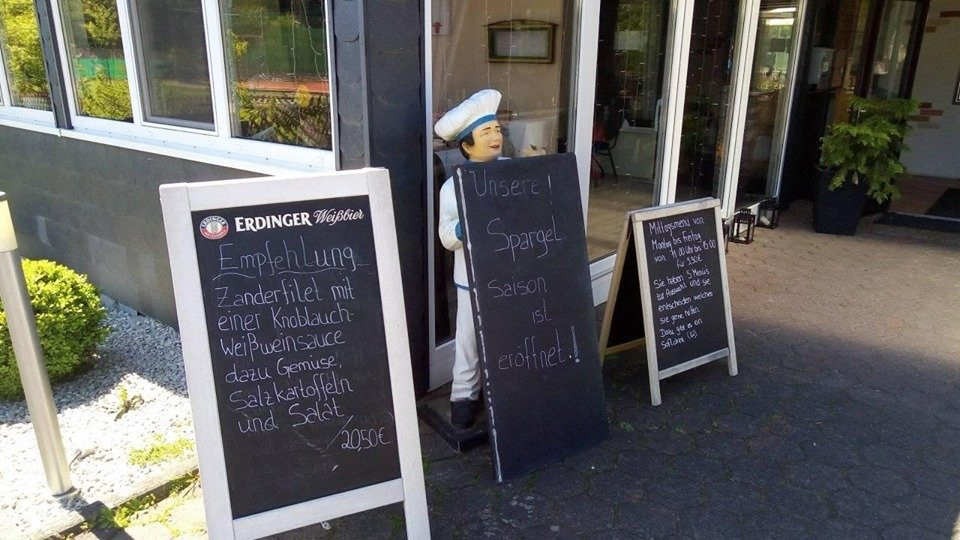 ERDINGER Weißbier
Empfehlung
Zanderfilet mit
einer Knoblauch-
weißweinsauce
dazu Gemüse,
Salzkartoffeln
und Salat
20,50€
Unsere!
Spargel
Saison
ist
eröffnet!
Mittagsmenü von
Montag bis Freitag
von 11.00 Uhr bis 15:00
für 9,90€
Sie haben 5 Menüs
zur Auswahl und sie
entscheiden welches
sie gerne hätten
Dazu gibt es ein
Softdrink